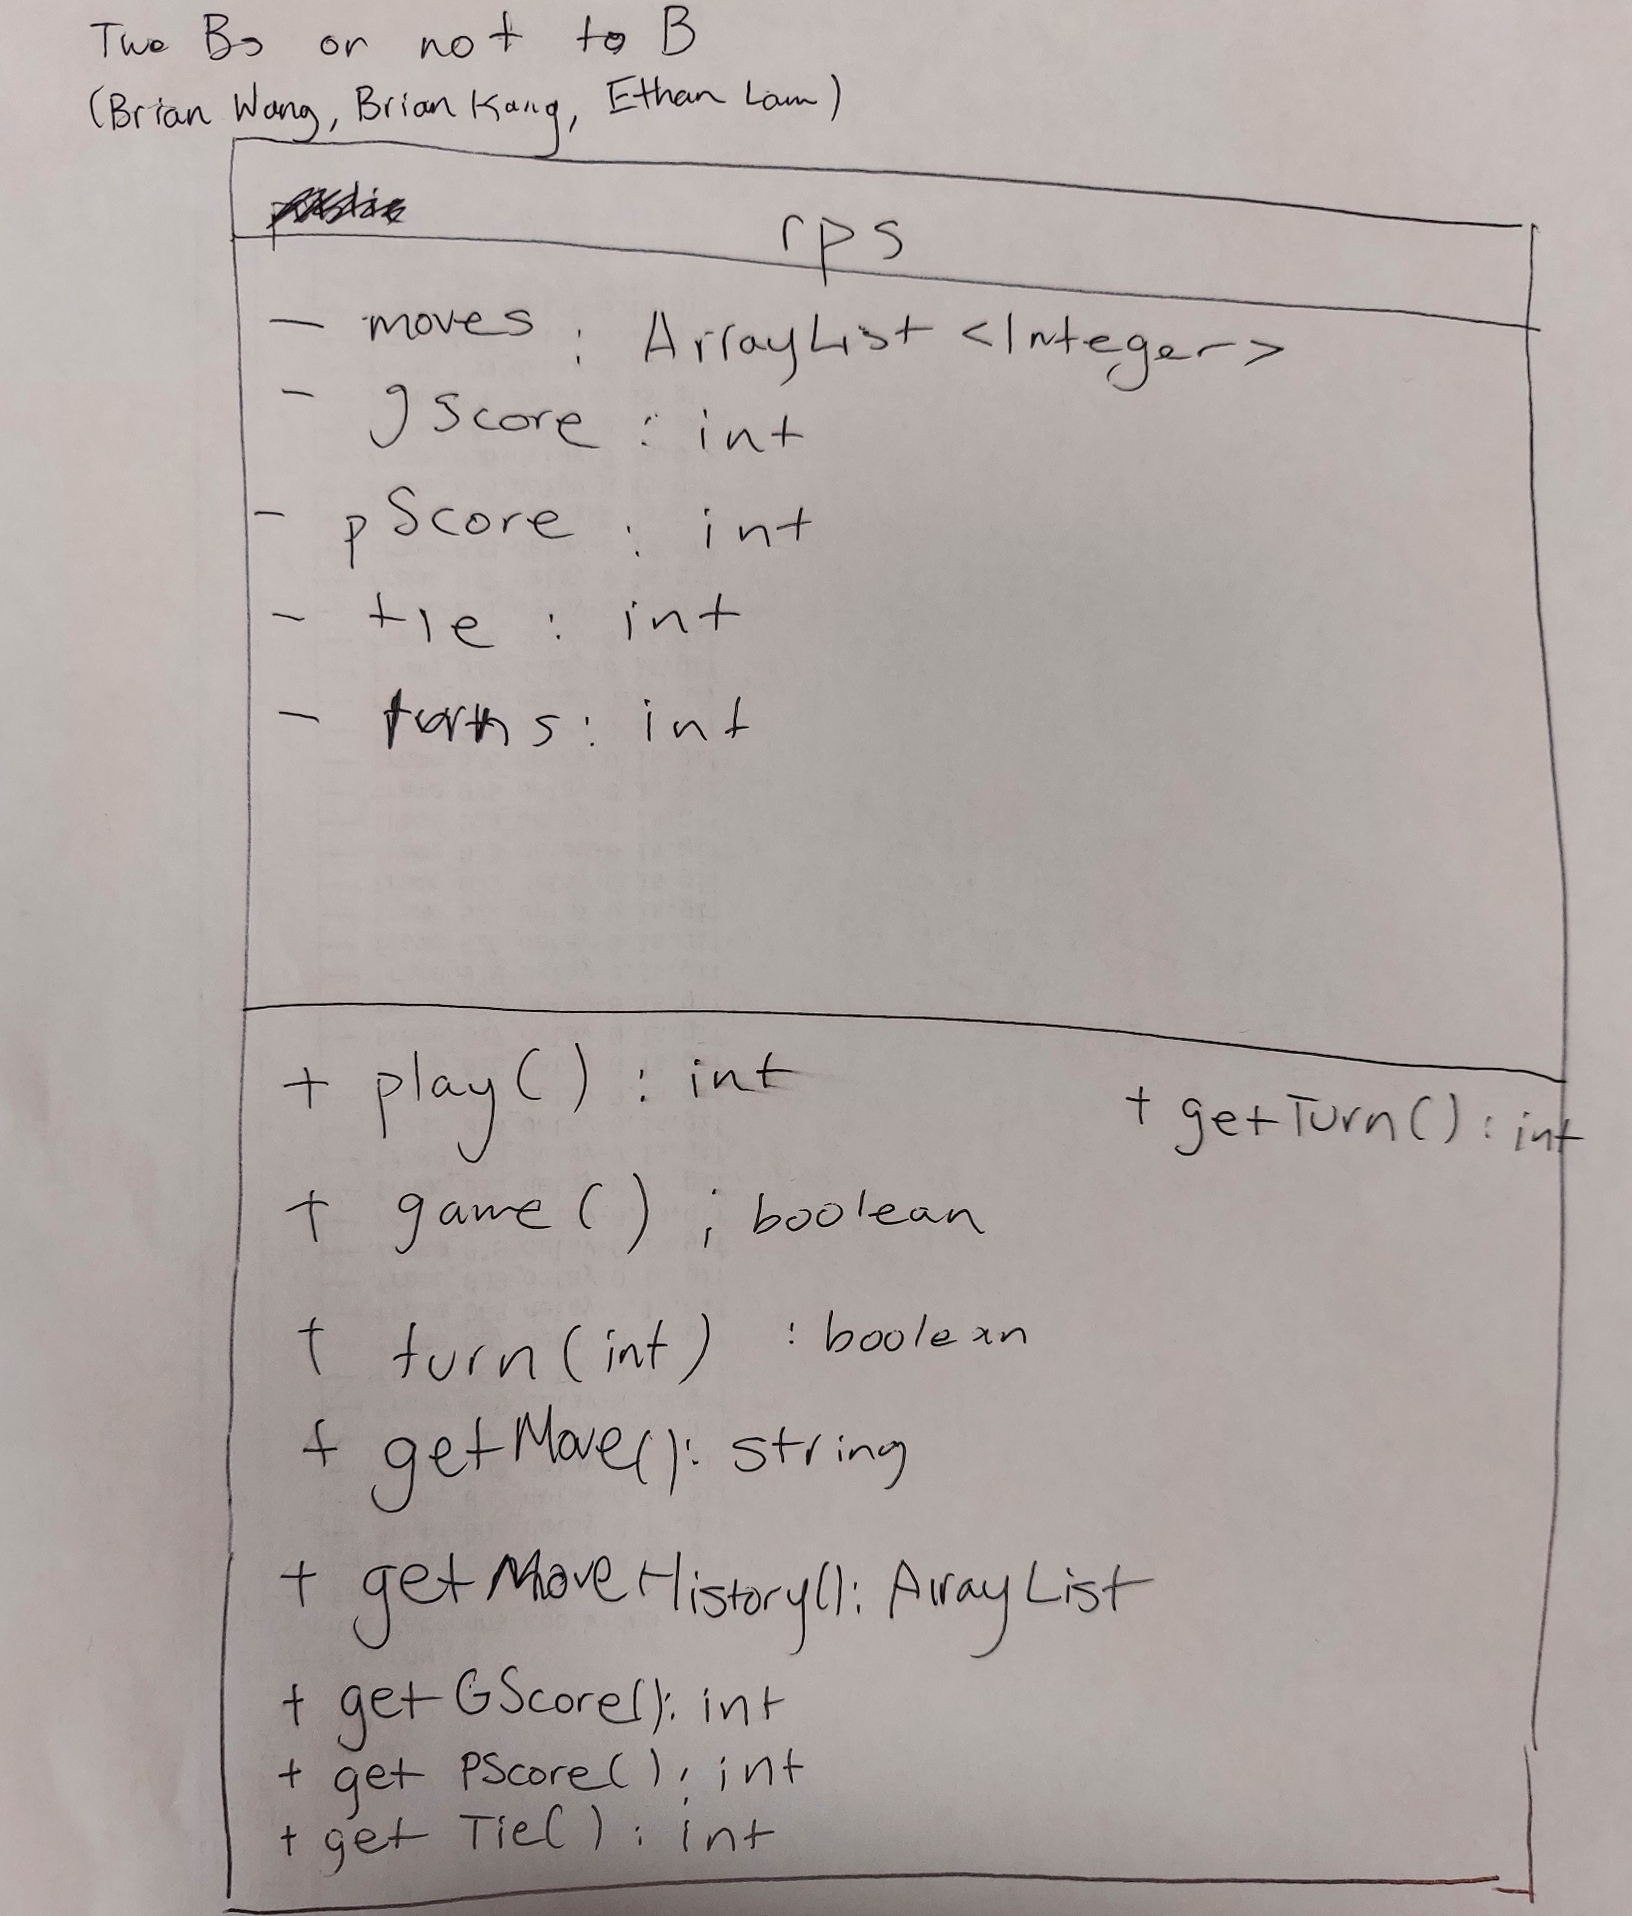 Two Bs or not to B
(Brian Wang, Brian Kang, Ethan Lam)
rps
- moves : ArrayList <Integer>
- gScore : int
- pScore : int
- tie : int
- turns : int
+ play() : int
+ getTurn() : int
+ game() ; boolean
+ turn(int) : boolean
+ getMove(): string
+ getMoveHistory(): ArrayList
+ getGScore(): int
+ get PScore() : int
+ get Tie() : int